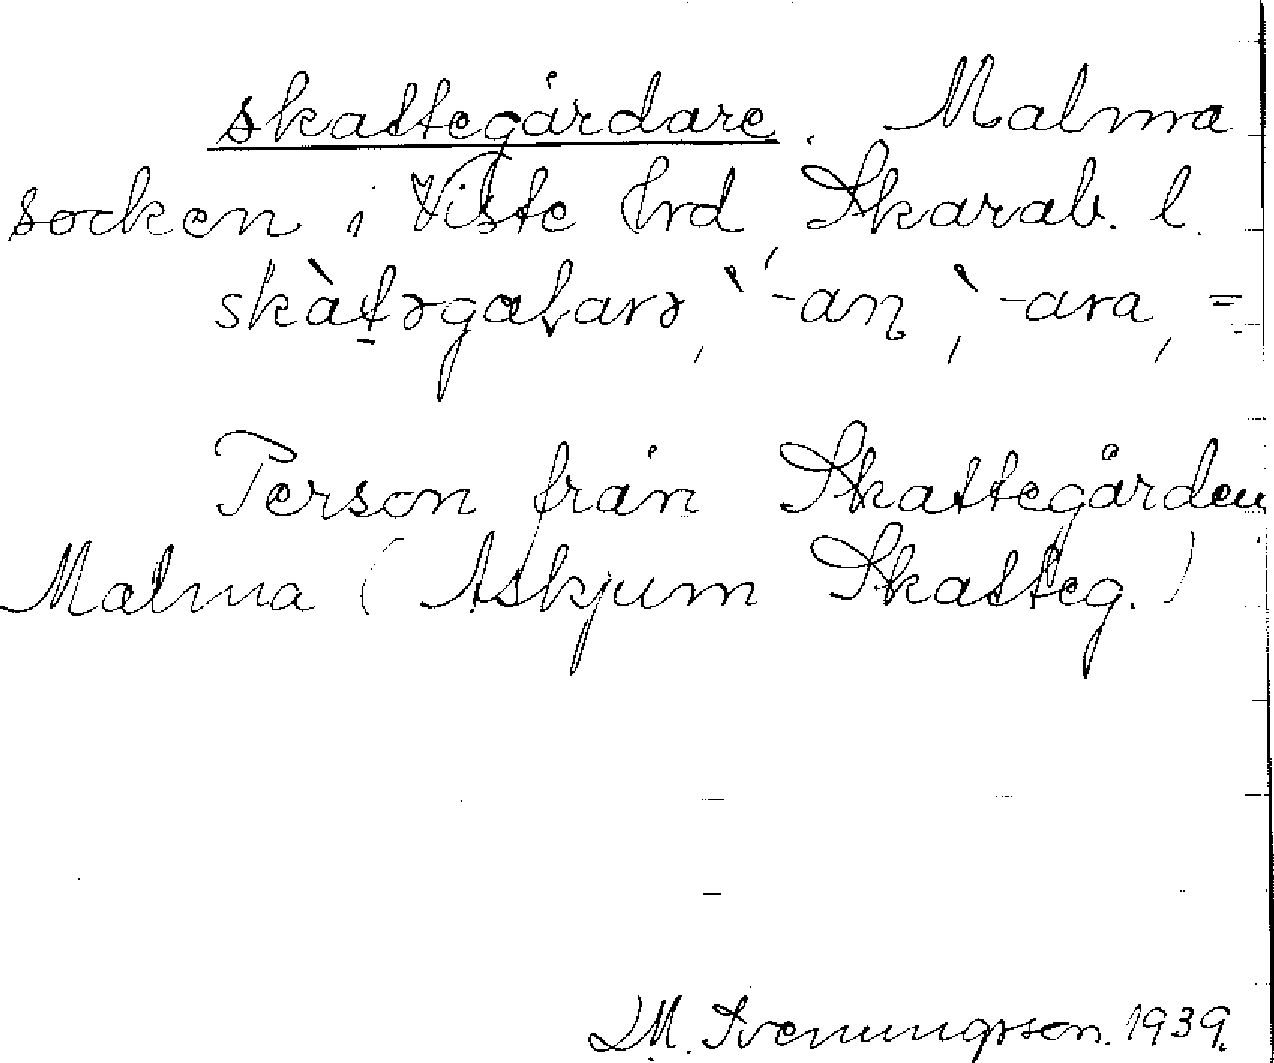 skattegårdare. Malma
socken i Viste hrd, Skarab. l.
skàt̠əgaɽarə, `-aɳ, `-ara, =
Person från Skattegården
Malma (Askjum Skatteg.)
D.M. Svenungsson. 1939.